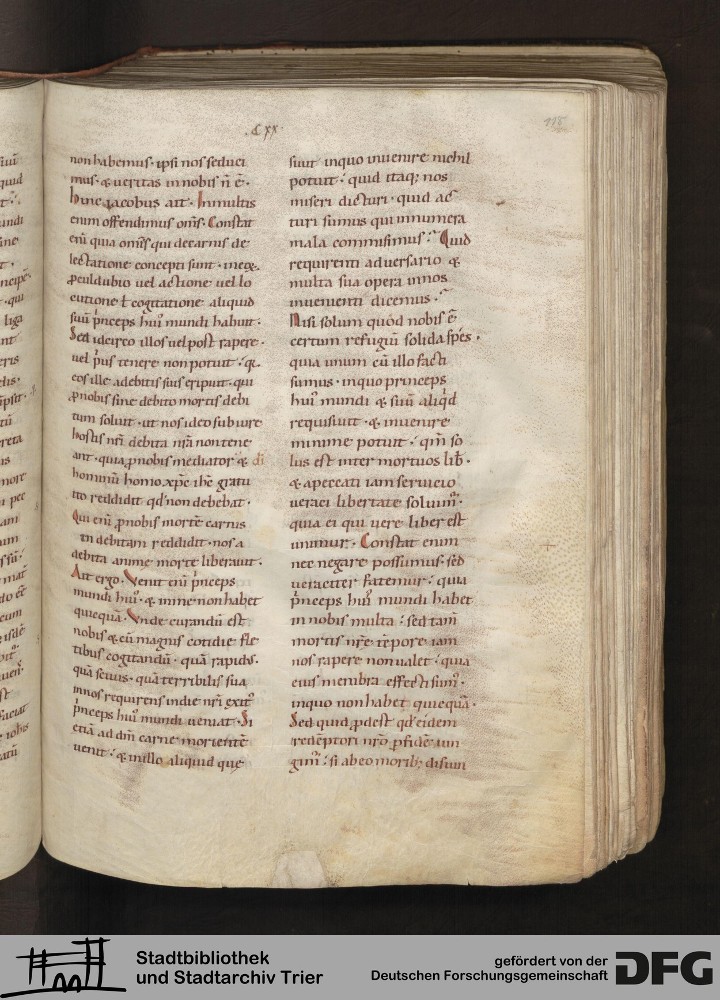 .CXX.
118
non habemus· ipsi nos seduci
mus· & ueritas in nobis n̄ ē·
hinc iacobus ait· In multis
enim offendimus om̄s· Constat
enī quia om̄s qui decarnis de
lectatione concepti sunt· in ea
ꝓculdubio uel actione uel lo
cutione ł cogitatione aliquid
suū p̄nceps hui᾽ mundi habuit·
Sed idcirco illos uel post rapere·
uel p̄us tenere non potuit· q̨
eos ille a debitis suis eripuit· qui
ꝓ nobis sine debito mortis debi
tum soluit· ut nos ideo sub iure
hostis n̄ri debita n̄ra non tene
ant· quia ꝓ nobis mediator & di
hominū homo xp̄c ih̄c gratu
ito reddidit qd̓ non debebat·
Qui enī ꝓ nobis mortē carnis
indebitam reddidit· nos a
debita anime morte liberauit·
Ait ergo· Venit enī p̄nceps
mundi hui᾽· & in me non habet
quicquā· Vnde curandū est
nobis & cū magnis cotidie fle
tibus cogitandū· quā rapidus·
quā seuus· quā terribilis sua
in nos requirens in die n̄ri exit᾽
p̄nceps hui᾽ mundi ueniat· Si
etiā ad dm̄ carne morientē
uenit· & in illo aliquid que
siuit in quo inuenire nichil
potuit· quid itaq; nos
miseri dicturi· quid ac
turi sumus qui innumera
mala commisimus· Quid
requirenti aduersario &
multa sua opera in nos
inuenienti dicemus·
Nisi solum quod nobis ē
certum refugiū solida spes·
quia unum cū illo facti
sumus· in quo princeps
hui᾽ mundi & suū aliq̇d
requisiuit· & inuenire
minime potuit· qm̄ so
lus est inter mortuos lib̄·
& apeccati iam seruicio
ueraci libertate soluim᾽·
quia ei qui uere liber est
unimur· Constat enim
nec negare possumus· sed
ueraciter fatemur· quia
p̄nceps hui᾽ mundi habet
in nobis multa· sed tam̄
mortis n̄re tēpore iam
nos rapere non ualet· quia
eius membra effecti sum᾽·
in quo non habet quicquā·
Sed quid ꝓdest qd̓ eidem
redēptori n̄ro p̱ fidē iun
gim᾽· si ab eo morib; disiun
Stadtbibliothek
und Stadtarchiv Trier
gefördert von der
Deutschen Forschungsgemeinschaft
DFG